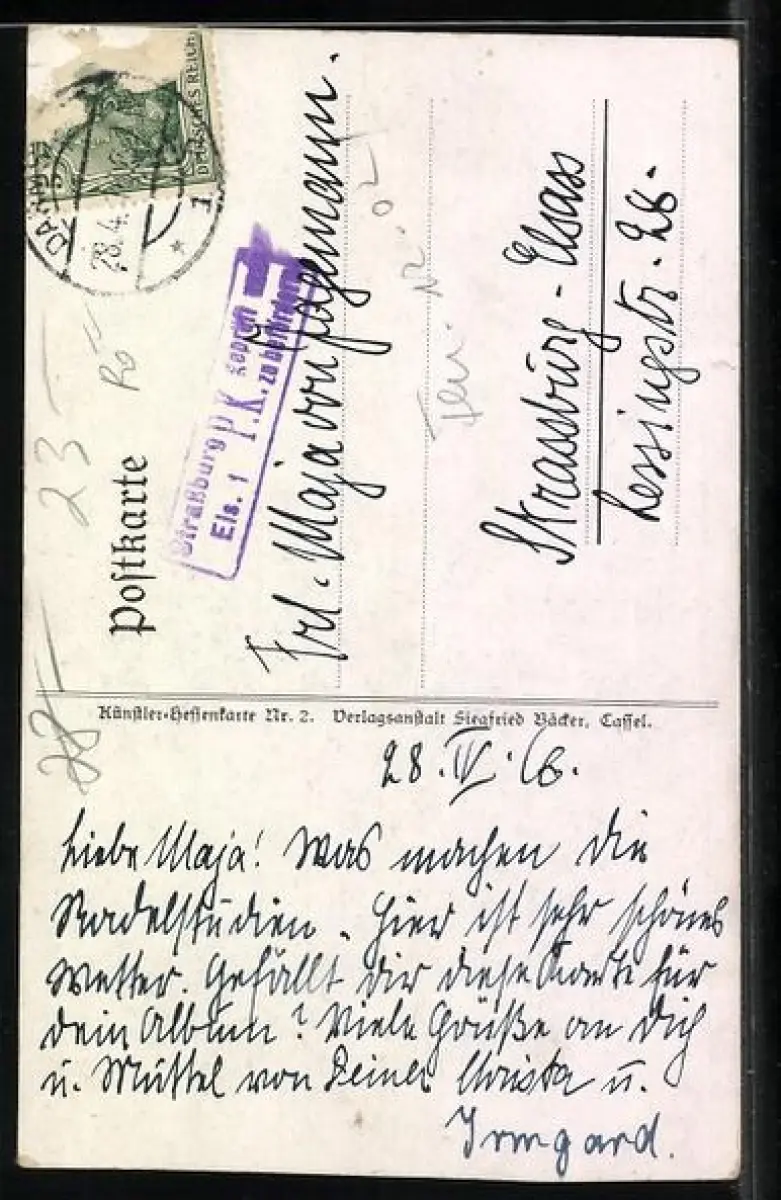 DEUTSCHES REICH
28.4.
1
Postkarte
Straßburg P.K. geprüft
Els. 1 P.K. zu befördern
Frl. Maja von Jagemann.
Strassburg-Elsass
Lessingstr. 28.
23
28
Künstler-Hessenkarte Nr. 2. Verlagsanstalt Siegfried Bäcker, Cassel.
28. IV. 16.
Liebe Maja! Was machen die
Nadelstudien. Hier ist sehr schönes
Wetter. Gefällt dir diese Karte für
dein Album? Viele Grüße an Dich
u. Muttel von Deiner Christa u.
Irmgard.